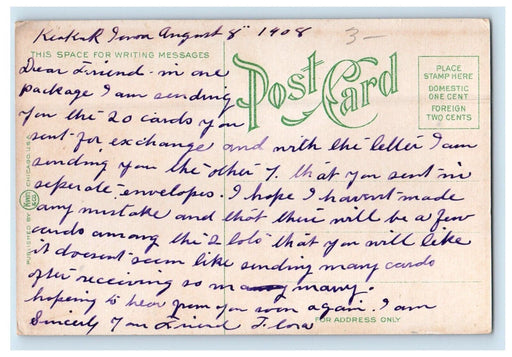 Keokuk Iowa August 8" 1908
3-
THIS SPACE FOR WRITING MESSAGES
Post Card
PLACE
STAMP HERE
DOMESTIC
ONE CENT
FOREIGN
TWO CENTS
Dear Friend - in one
package I am sending
you the 20 cards you
sent for exchange and with the letter I am
sending you the other 7. that you sent in
seperate envelopes. I hope I havent made
any mistake and that there will be a few
cards among the 2 lots that you will like
it doesnt seem like sending many cards
after receiving so many.
hoping to hear from you soon again. I am
Sincerly Your Friend Flora
FOR ADDRESS ONLY
PUBLISHED BY